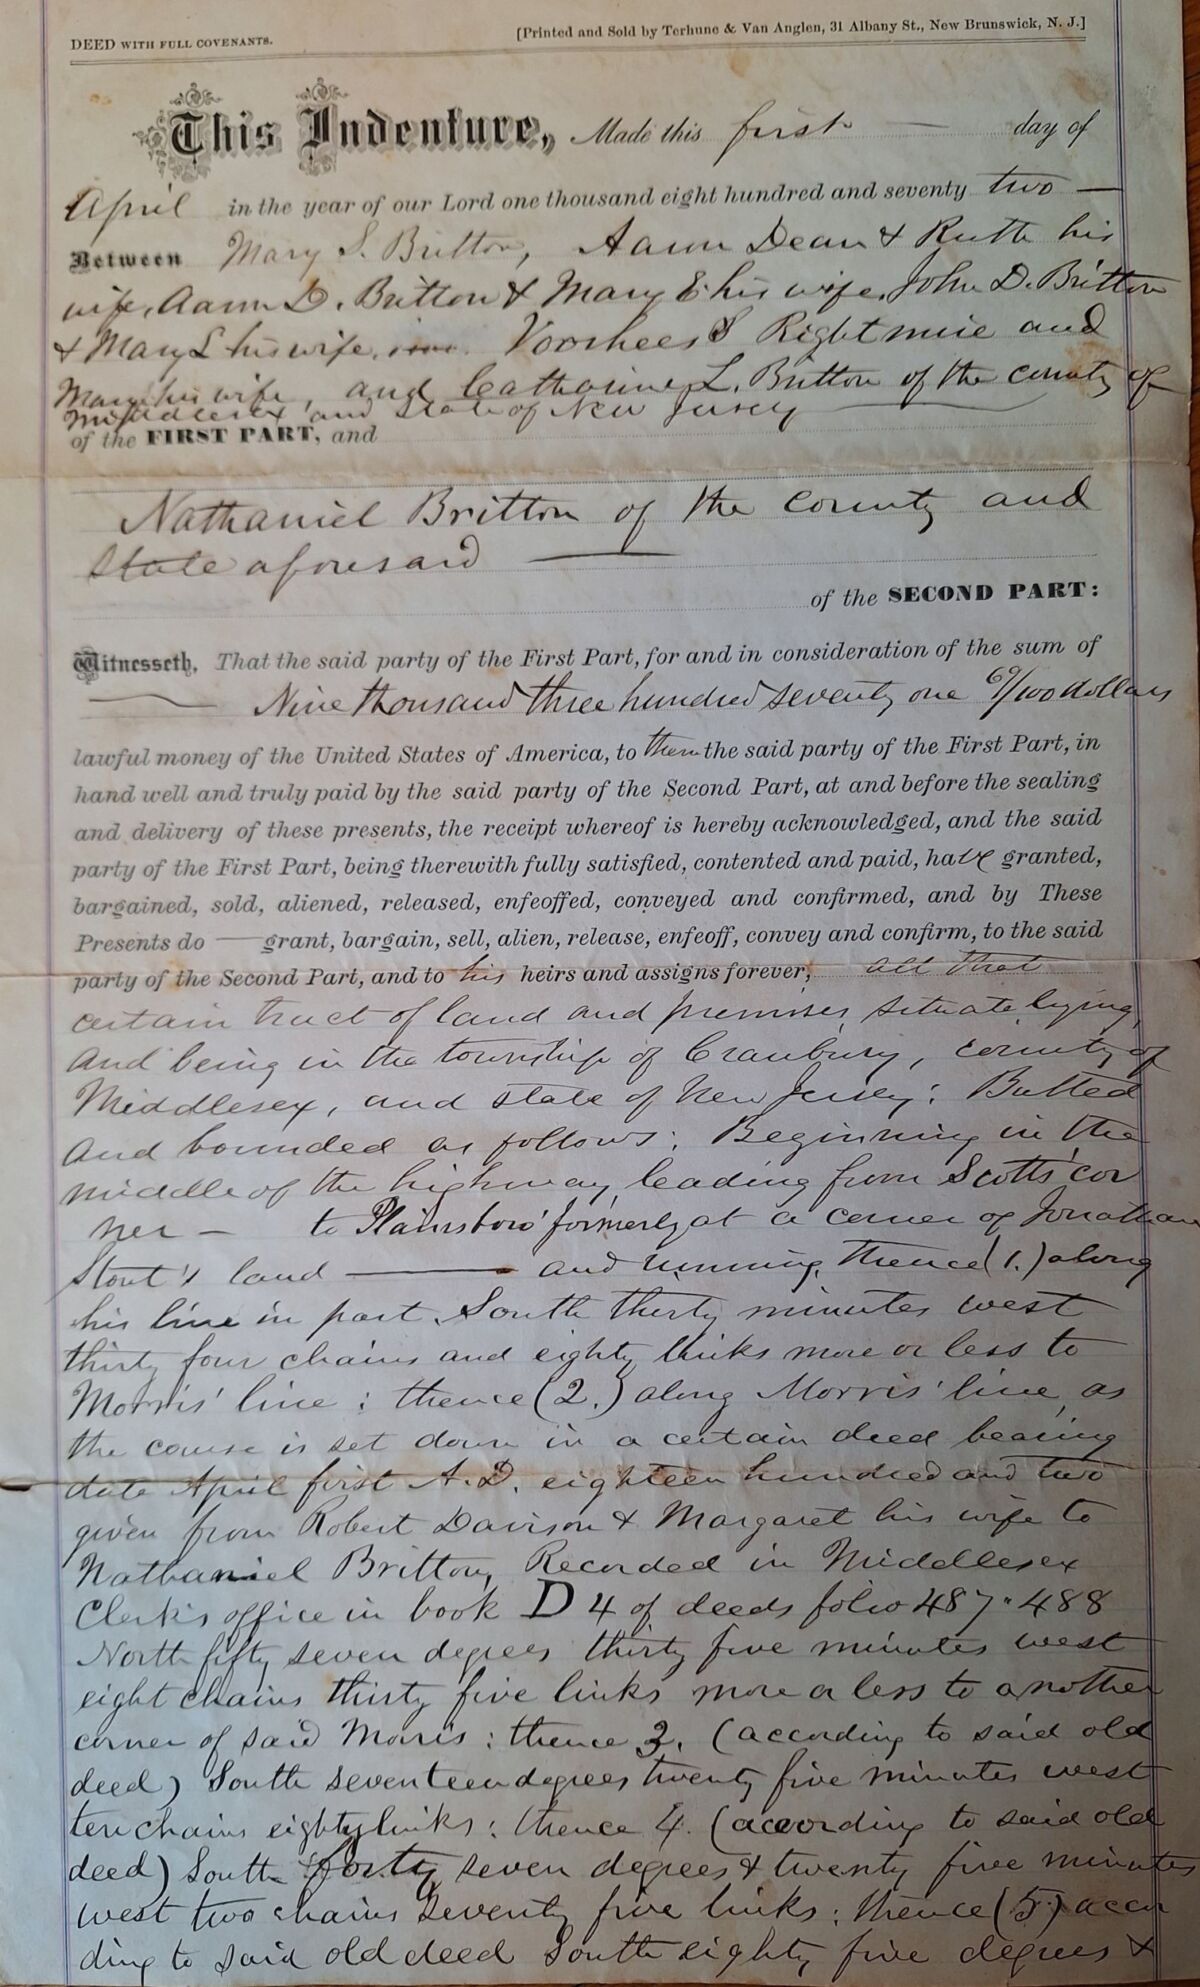 DEED WITH FULL COVENANTS.
[Printed and Sold by Terhune & Van Anglen, 31 Albany St., New Brunswick, N. J.]
This Indenture, Made this first — day of
April in the year of our Lord one thousand eight hundred and seventy two —
Between Mary S. Britton, Aaron Dean & Ruth his
wife, Aaron D. Britton & Mary E. his wife, John D. Britton
& Mary L his wife, Voorhees S Rightmire and
Mary his wife, and Catharine L. Britton of the county of
Middlesex and State of New Jersey
of the FIRST PART, and
Nathaniel Britton of the county and
state aforesaid
of the SECOND PART:
Witnesseth, That the said party of the First Part, for and in consideration of the sum of
Nine thousand three hundred seventy one 69/100 dollars
lawful money of the United States of America, to them the said party of the First Part, in
hand well and truly paid by the said party of the Second Part, at and before the sealing
and delivery of these presents, the receipt whereof is hereby acknowledged, and the said
party of the First Part, being therewith fully satisfied, contented and paid, have granted,
bargained, sold, aliened, released, enfeoffed, conveyed and confirmed, and by These
Presents do — grant, bargain, sell, alien, release, enfeoff, convey and confirm, to the said
party of the Second Part, and to his heirs and assigns forever, all that
certain tract of land and premises, situate, lying,
and being in the township of Cranbury, county of
Middlesex, and state of New Jersey; Butted
and bounded as follows: Beginning in the
middle of the highway leading from Scotts' cor
ner — to Plainsboro' formerly at a corner of Jonathan
Stout's land — and running thence (1.) along
his line in part South thirty minutes west
thirty four chains and eighty links more or less to
Morris' line; thence (2.) along Morris' line, as
the course is set down in a certain deed bearing
date April first A.D. eighteen hundred and two
given from Robert Davison & Margaret his wife to
Nathaniel Britton, Recorded in Middlesex
Clerk's office in book D 4 of deeds folio 487-488
North fifty seven degrees thirty five minutes west
eight chains thirty five links more or less to another
corner of said Morris; thence 3. (according to said old
deed) South seventeen degrees twenty five minutes west
ten chains eighty links; thence 4. (according to said old
deed) South forty seven degrees & twenty five minutes
west two chains seventy five links; thence (5.) accor
ding to said old deed South eighty five degrees &